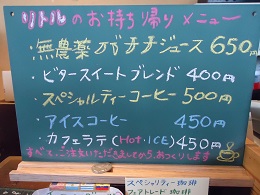 リトルのお持ち帰りメニュー
・無農薬バナナジュース 650円
・ビタースイートブレンド 400円
・スペシャルティーコーヒー 500円
・アイスコーヒー 450円
・カフェラテ(Hot・ICE)450円
すべて、ご注文いただきましてから、おつくりします
スペシャリティー珈琲
フェアトレード珈琲